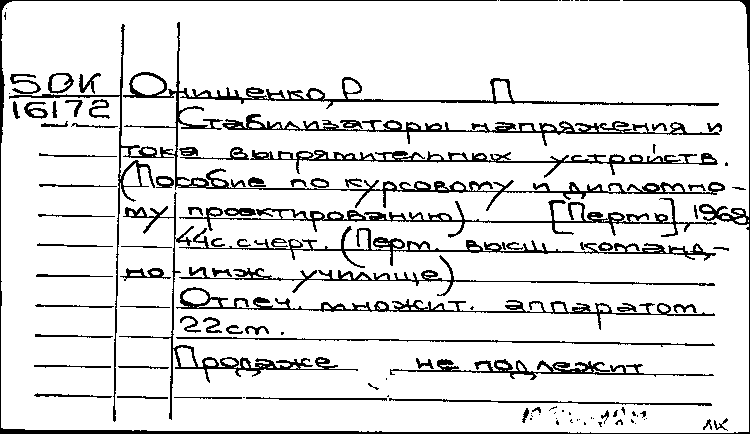 50К Онищенко, Р П
16172 Стабилизаторы напряжения и
тока выпрямительных устройств.
(Пособие по курсовому и дипломно-
му проектированию) [Пермь], 1968,
44с. с черт. (Перм. высш. команд,-
но-инж. училище)
Отпеч. множит. аппаратом.
22см.
Продаже не подлежит
ЛК